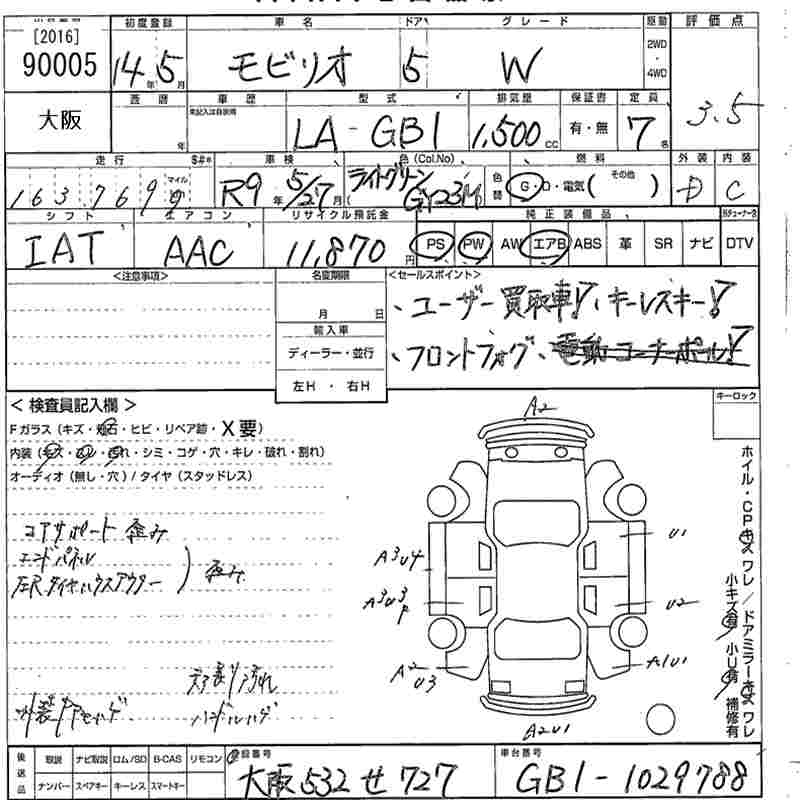 [2016]
90005
大阪
初度登録 車名 ドア グレード 駆動 評価点
14年5月 モビリオ 5 W 2WD・4WD 3.5
車歴 型式 排気量 保証書 定員
未記入は自家用
年 月 LA-GB1 1,500cc 有・無 7名
走行 マイル 車検 色(Col.No) 色替 燃料 外装 内装
163,769 R9年5/27月 ライトグリーン GY23M G・D・電気( その他 ) D C
シフト エアコン リサイクル預託金 純正装備品
IAT AAC 11,870円 PS PW AW エアB ABS 革 SR ナビ DTV
<注意事項> 名変期限 <セールスポイント>
月 日
輸入車
ディーラー・並行
左H ・ 右H
、ユーザー買取車!、キーレスキー!
、フロントフォグ、電動コーナーポール!
キーロック
< 検査員記入欄 >
Fガラス(キズ・飛石・ヒビ・リペア跡・X要)
内装(キズ・・汚れ・シミ・コゲ・穴・キレ・破れ・割れ)
オーディオ(無し・穴)/タイヤ(スタッドレス)
コアサポート 歪み
エンドパネル
左R タイヤハウスアウター ) 歪み
天張り汚れ
ハンドルハゲ
A2
A3U4
A3U3
P
A2
U3
U1
U2
A1U1
A2U1
ホイル・CPキズワレ/ドアミラーキズワレ
小キズ有 小U有 補修有
後送品 取説 ナビ取説 ロム/SD B-CAS リモコン 登録番号 車台番号
ナンバー スペアキー キーレス スマートキー 大阪532せ727 GB1-1029788